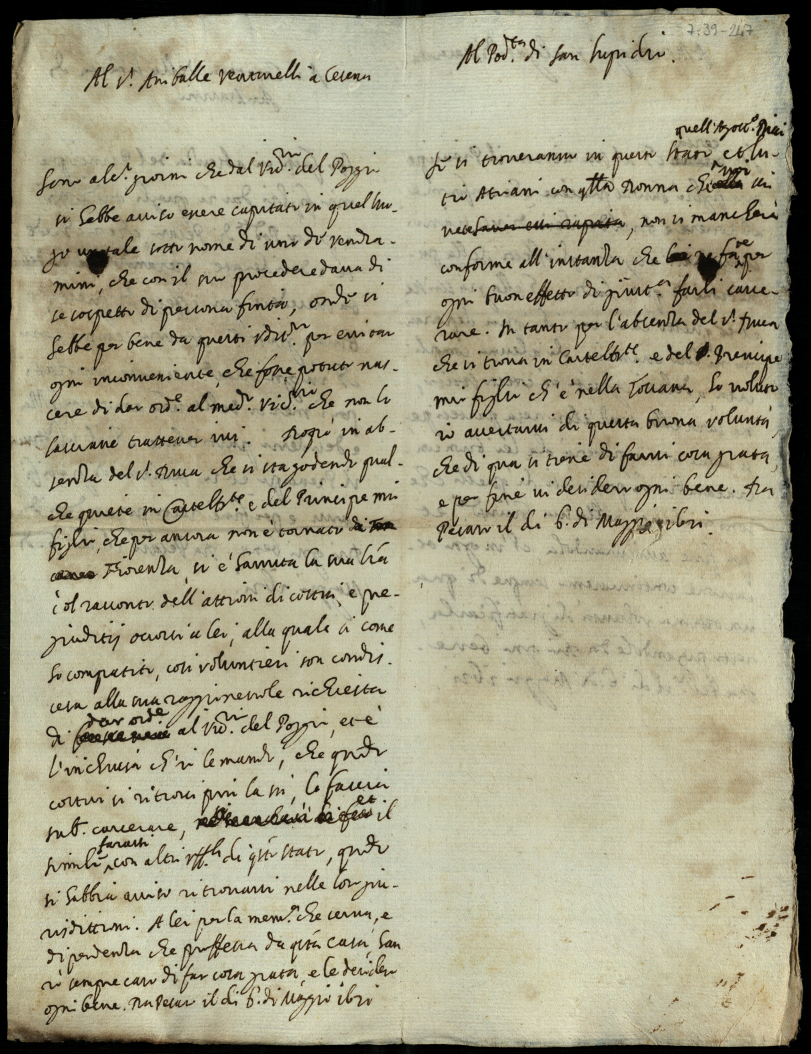 7:39-247
Al S.r Aniballe Venturelli a Cesena
Sono alc.i giorni che dal Vic.rio del Poggio
si hebbe aviso essere capitato in quel luo-
go un tale sotto nome di uno de vendra-
mini, che con il suo procedere dava di
se sospetto di persona finta, onde si
hebbe per bene da questi per evitar
ogni inconveniente che fosse potuto nas-
cere di dar ord.e al med.o Vic.rio che non lo
lasciasse trattener ivi. in ab-
senza del S.r Duca che si sta godendo qual-
che quiete in Castelb.te e del Principe mio
figlio, che per ancora non è tornato da
Fiorenza, si è havuta la sua l'ra
col racconto dell'attioni di costui, e pre-
giuditij occorsi a lei, alla quale si come
ho compatito, così volontieri son condis-
cesa alla sua raggionevole richiesta
di dar ord.e al Vic.rio del Poggio, et è
l'inclusa ch'io le mando, che quando
costui si ritrovi più la su, lo faccia
sub.o carcerare, et il
simile farassi con altri uff.li di q'sto stato, quando
si habbia aviso ritrovarsi nelle lor giu-
risdittioni. A lei per la mem.a che serva, e
dipendenza che professa da q'sta casa, hau
rò sempre caro di far cosa grata e le desidero
ogni bene. Da Pesaro il di 6. di Maggio 1621
Al Pod.tà di San Lupidio.
quell'Agost.o
Se si troveranno in questo stato et lu-
tio Attiani con q'lla Donna che
non si mancherà
conforme all'instanza che per
ogni buon effetto di giust.a farli carce-
rare. In tanto per l'absenza del S.r Duca
che si trova in Castelb.te e del Prencipe
mio figlio ch'è nella Toscana, ho voluto
io avertirvi di questa buona volontà,
che di qua si tiene di farvi cosa grata,
e per fine vi desidero ogni bene. Da
Pesaro il di 6. di Maggio 1621.